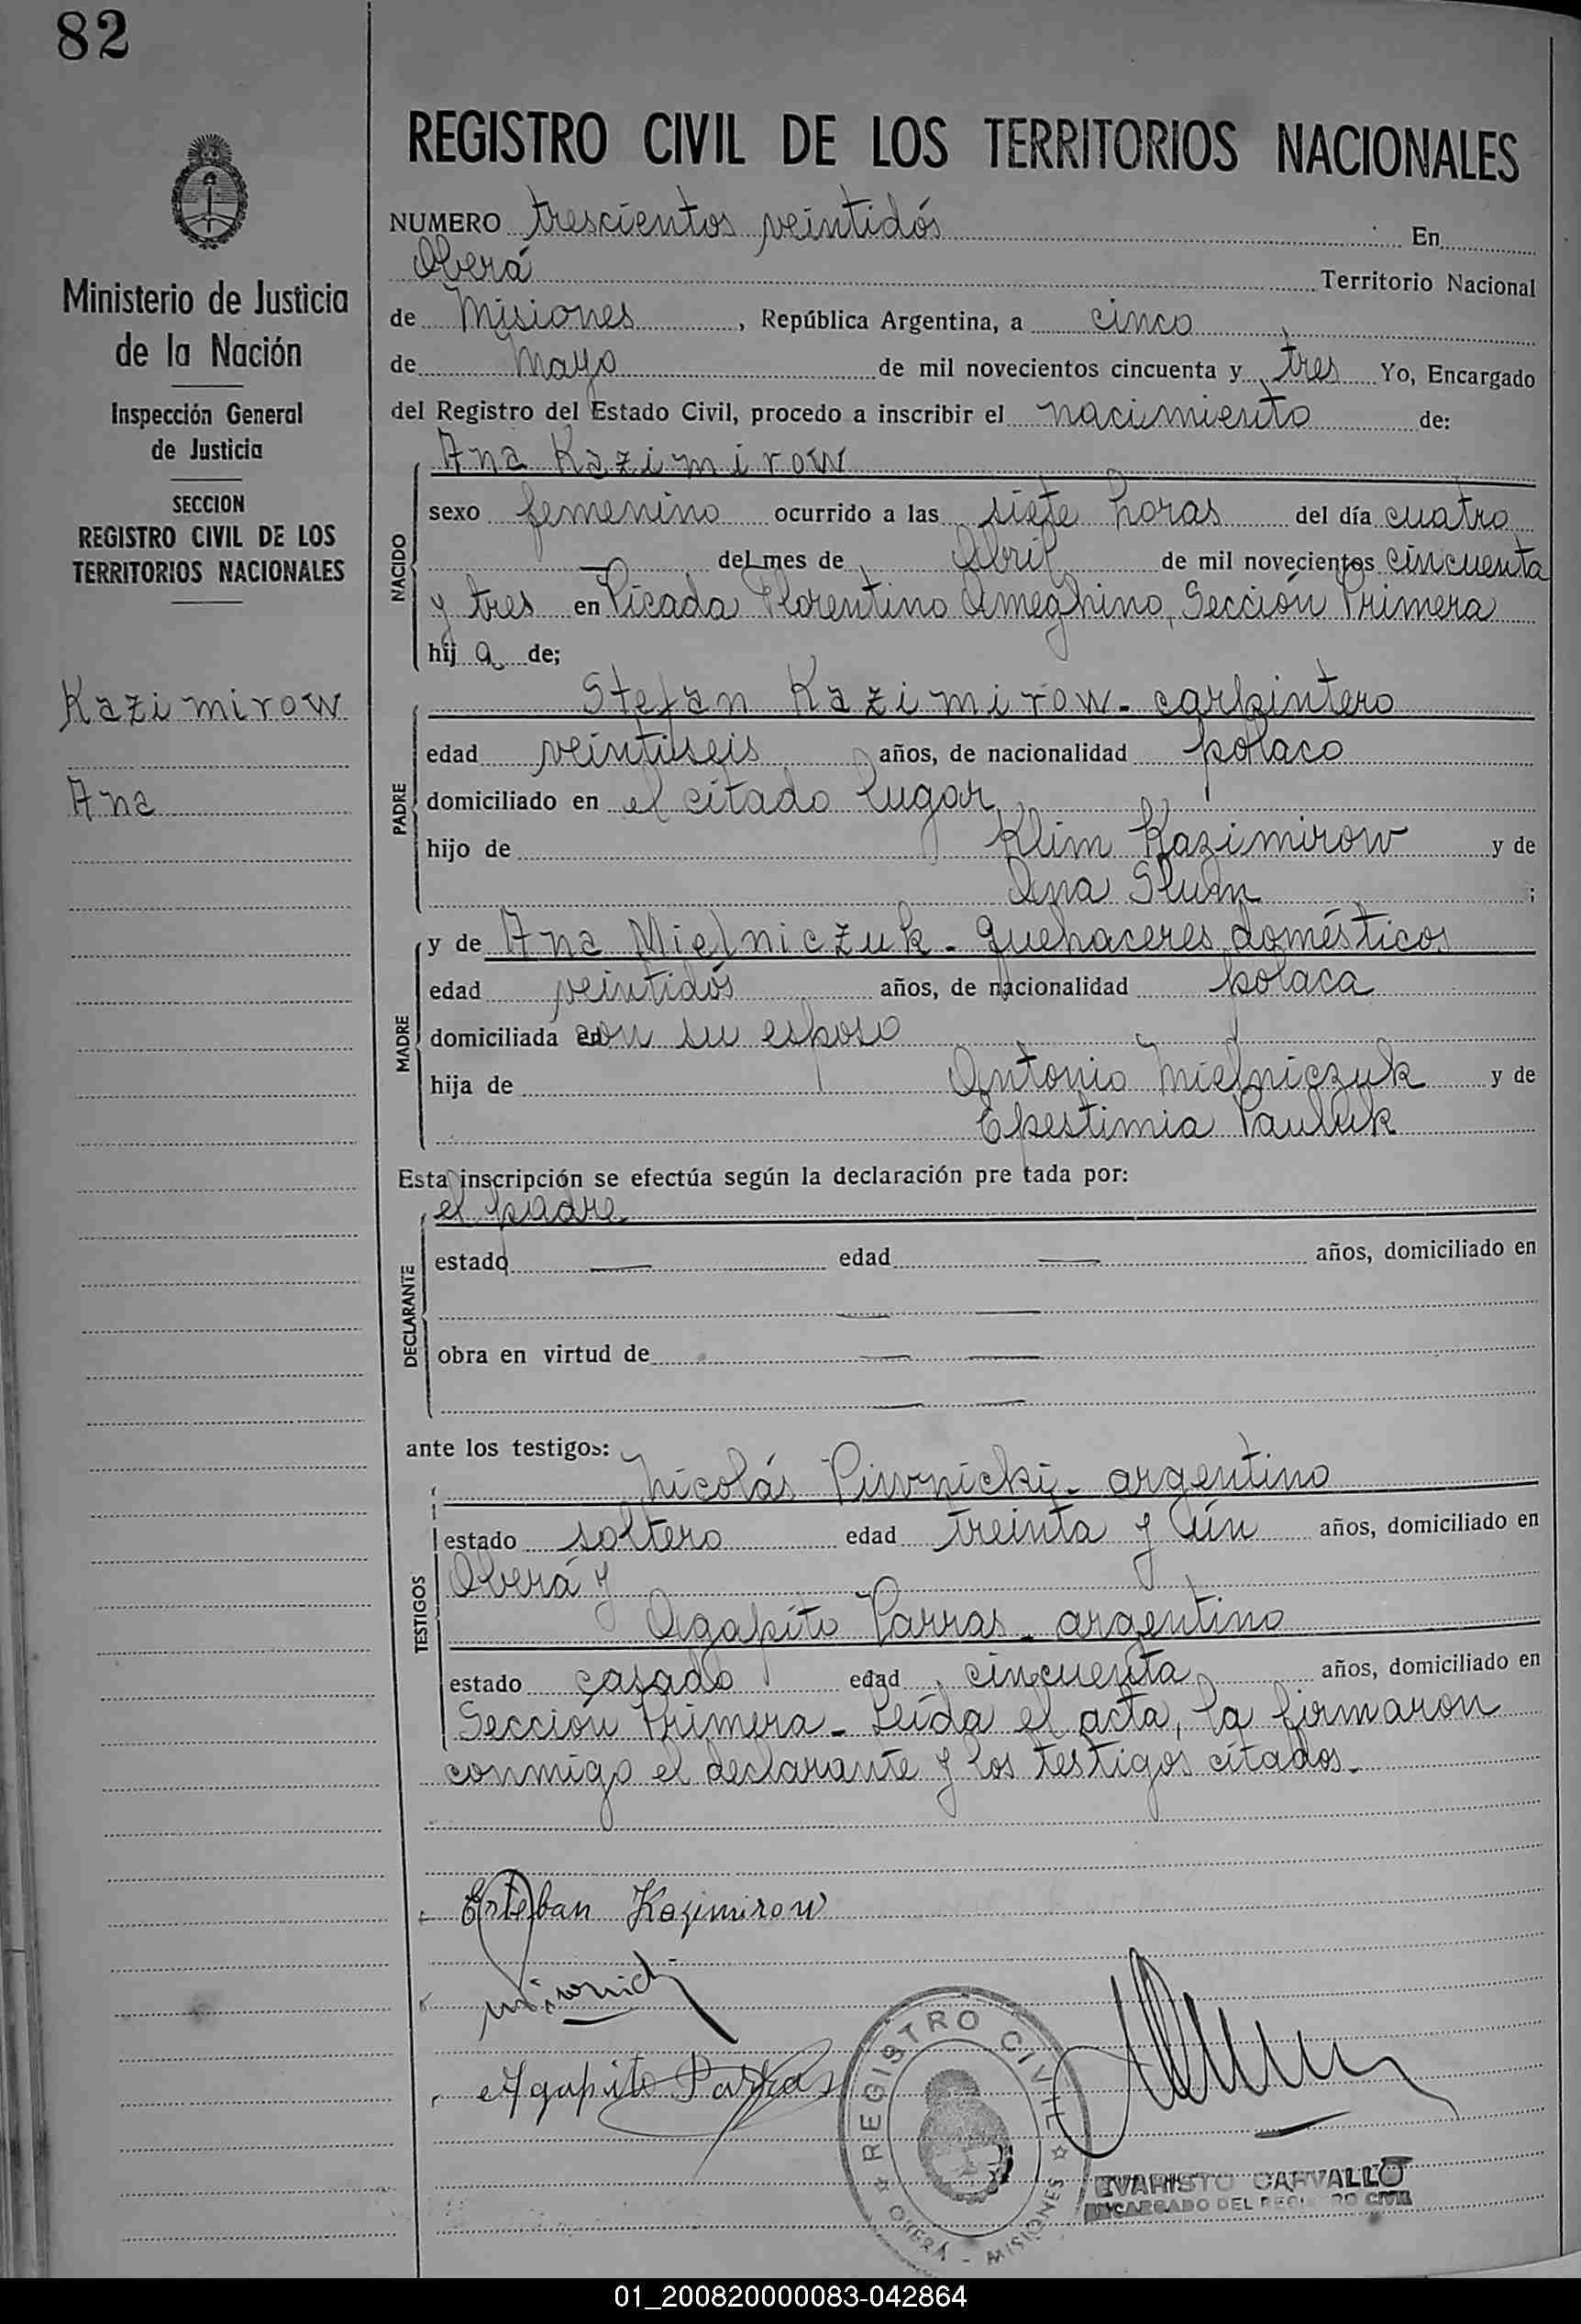 82
REGISTRO CIVIL DE LOS TERRITORIOS NACIONALES
Ministerio de Justicia
de la Nación
Inspección General
de Justicia
SECCION
REGISTRO CIVIL DE LOS
TERRITORIOS NACIONALES
Kazimirow
Ana
NUMERO trescientos veintidós En
Oberá Territorio Nacional
de Misiones, República Argentina, a cinco
de Mayo de mil novecientos cincuenta y tres Yo, Encargado
del Registro del Estado Civil, procedo a inscribir el nacimiento de:
Ana Kazimirow
NACIDO
sexo femenino ocurrido a las siete horas del día cuatro
del mes de Abril de mil novecientos cincuenta
y tres en Picada Florentino Ameghino, Sección Primera
hij a de;
Stefan Kazimirow - carpintero
PADRE
edad veintiseis años, de nacionalidad polaco
domiciliado en el citado lugar
hijo de Klim Kazimirow y de
Ana ;
y de Ana Mielniczuk - quehaceres domésticos
MADRE
edad veintidós años, de nacionalidad polaca
domiciliada en con su esposo
hija de Antonio Mielniczuk y de
Epestimia Pauluk
Esta inscripción se efectúa según la declaración pre tada por:
el padre
DECLARANTE
estado — edad — años, domiciliado en
— —
obra en virtud de — —
— —
ante los testigos:
Nicolás Piwnicki - argentino
TESTIGOS
estado soltero edad treinta y ún años, domiciliado en
Oberá y
Agapito Parras - argentino
estado casado edad cincuenta años, domiciliado en
Sección Primera - Leída el acta, la firmaron
conmigo el declarante y los testigos citados.
Esteban Kazimirow
Agapito Parras
REGISTRO CIVIL
OBERÁ - MISIONES
EVARISTO CARVALLO
ENCARGADO DEL REGISTRO CIVIL
01_200820000083-042864